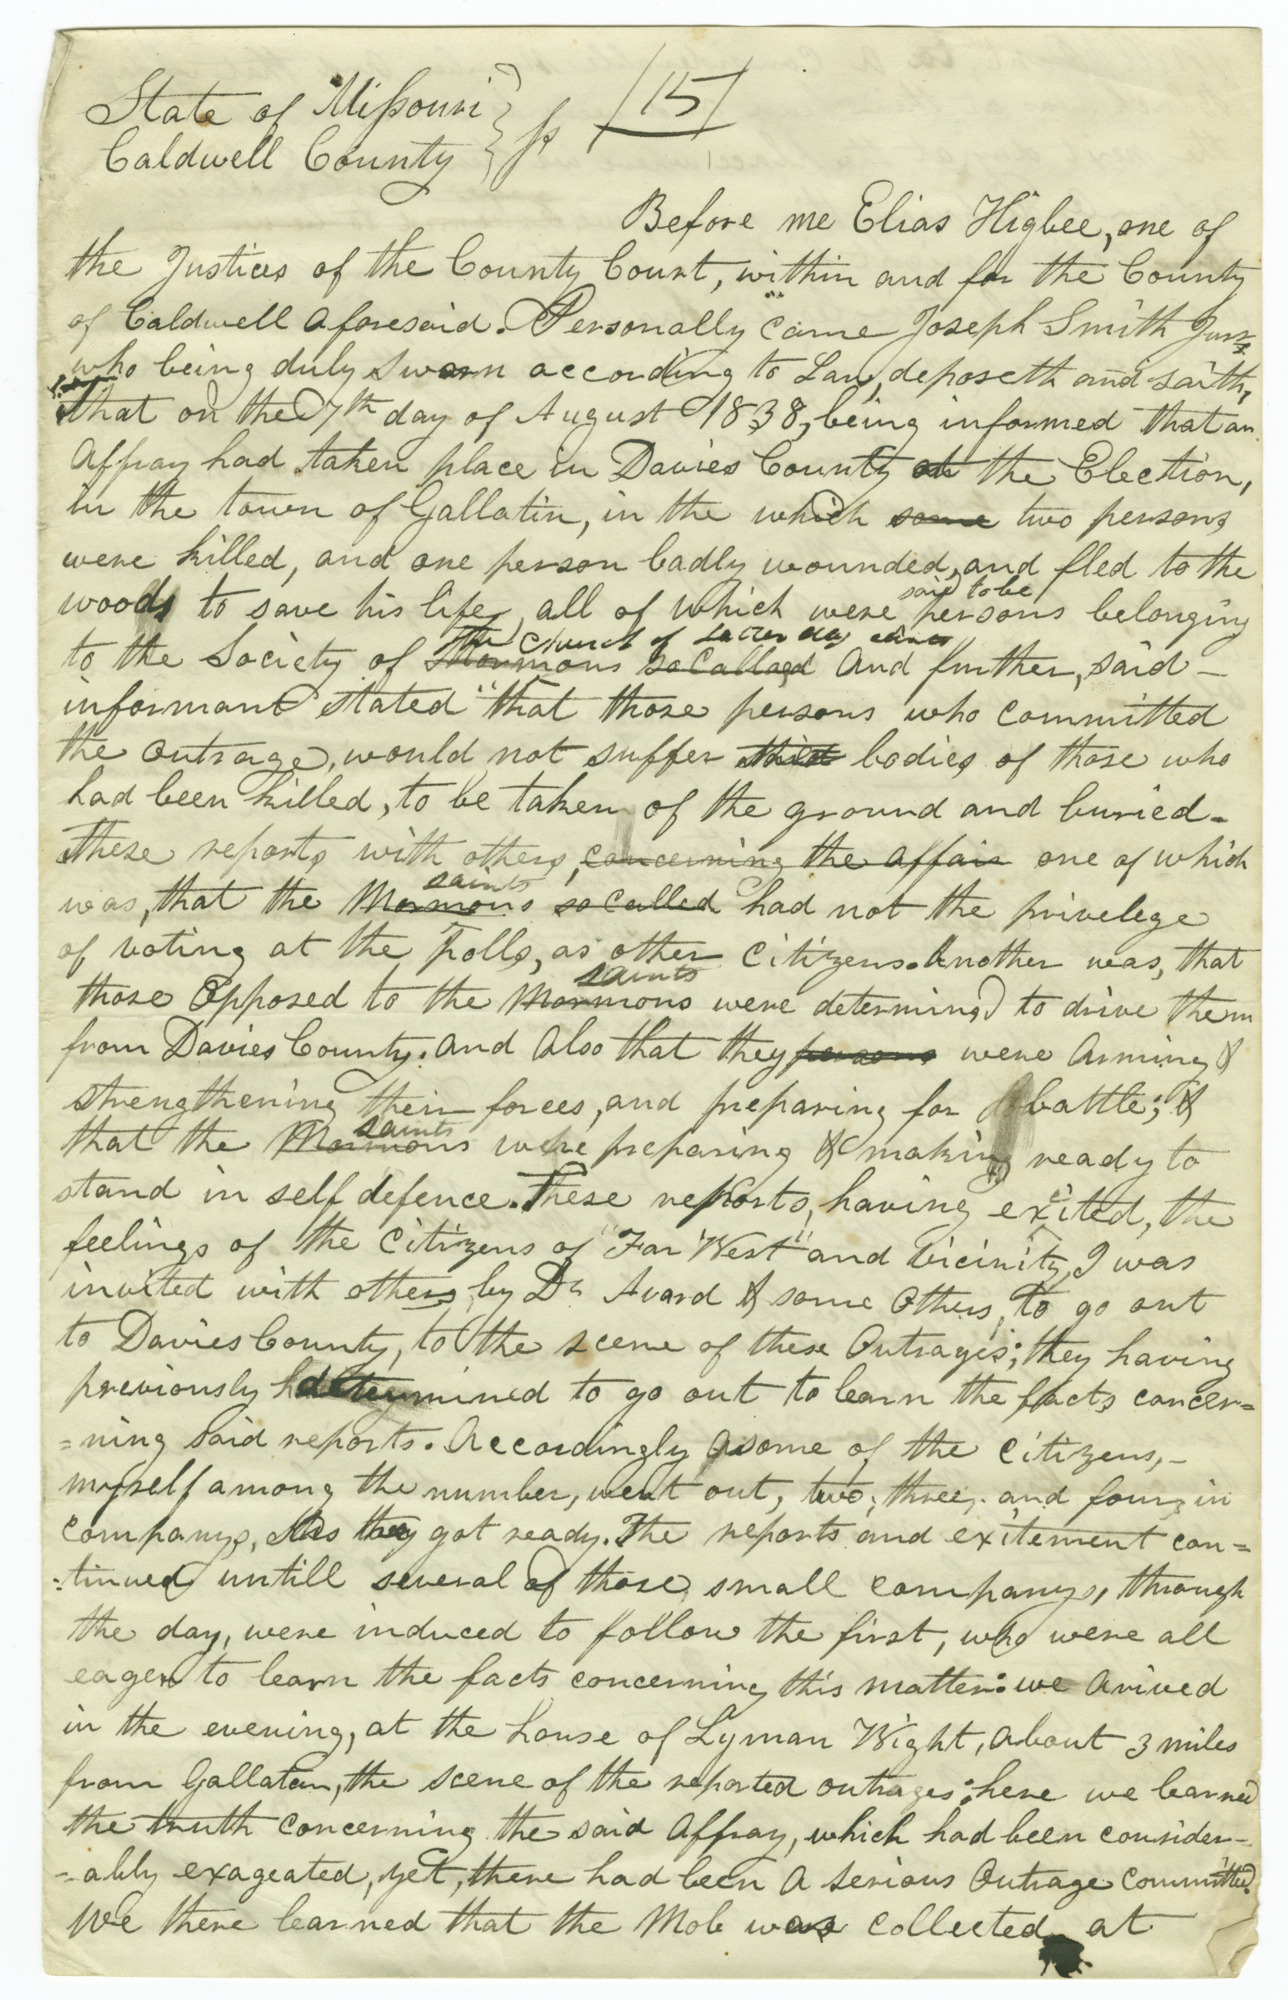 State of Missouri } ss (15)
Caldwell County }
Before me Elias Higbee, one of
the Justices of the County Court, within and for the County
of Caldwell aforesaid. Personally came Joseph Smith Junr.
who being duly sworn according to Law, deposeth and saith,
that on the 7th day of August 1838, being informed that an
affray had taken place in Davies County at the Election,
in the town of Gallatin, in the which some two persons
were killed, and one person badly wounded, and fled to the
woods to save his life, all of which were said to be persons belonging
to the Society of the Church of Latter day saints Mormons so called and further, said
informant stated "that those persons who committed
the outrage, would not suffer their bodies of those who
had been killed, to be taken of the ground and buried.
These reports with others, concerning the affair one of which
was, that the Mormons saints so called had not the privelege
of voting at the Polls, as other citizens. Another was, that
those opposed to the Mormons saints were determined to drive them
from Davies County. and also that they persons were arming &
strengthening their forces, and preparing for battle; &
that the Mormons saints were preparing & making ready to
stand in self defence. These reports, having exited, the
feelings of the citizens of "Far West" and vicinity, I was
invited with others, by Dr Avard & some others, to go out
to Davies County, to the scene of these outrages; they having
previously determined to go out to learn the facts concer=
=ning said reports. Accordingly some of the citizens,-
myself among the number, went out, two, three, and four, in
companys, as they got ready. The reports and exitement con=
=tinued untill several of those small companys, through
the day, were induced to follow the first, who were all
eager to learn the facts concerning this matter: we arived
in the evening, at the house of Lyman Wight, about 3 miles
from Gallatan, the scene of the reported outrages: here we learned
the truth concerning the said affray, which had been consider-
-ably exageated, yet, there had been a serious outrage committed.
We there learned that the Mob was collected at